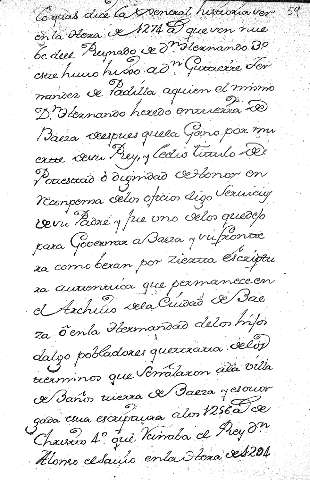 lo qual dice la General historia ver
en la Hera de 1274 a.s que ven nue
be del Reynado de Dn Hernando 3º
este hubo hijo a Dn Gutierre Fer
nandez de Padilla a quien el mismo
Dn Hernando heredo en tierra de
Baeza despues que la Gano por mu
erte de su Rey, y le dio titulo de
Potestad o dignidad de honor en
Recompensa de los oficios digo Servicios
de su Padre y fue uno de los que dejo
para Governar a Baeza y su fronte
ra como beran por zierta escriptu
ra autentica que permanece en
el Archibo de la Ciudad de Bae
za o en la Hermandad de los hijos
dalgo pobladores que trata de los
terminos que Señalaron a la villa
de Baños tierra de Baeza y es otor
gada esta escriptura a los 1256 a.s de
Christo 4º que Reinaba el Rey Dn
Alonso el Sauio en la Hera de 1294